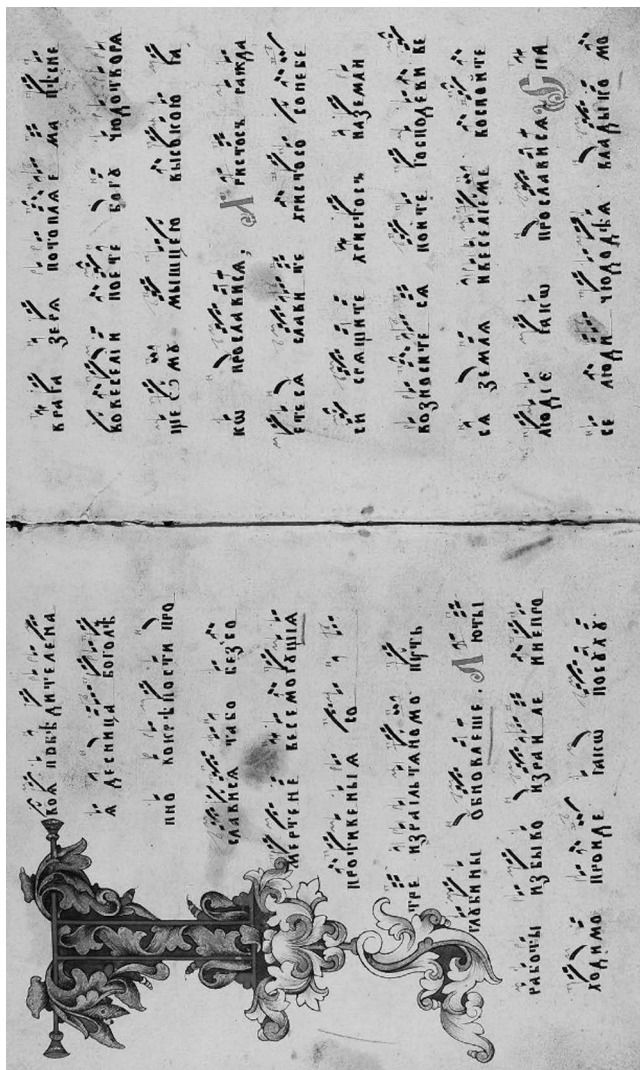 Твоѧ побѣдителена
ѧ десница боголѣ
пно вокрѣпости про
слависѧ тако безсо
мертене весемогꙋщіа
противеныѧ со
тре израильтѧномо пꙋть
глꙋбины обновлеше. Люты
работы избыво израиле инепро
ходимо проиде ꙗкѡ посꙋхꙋ
врага зерѧ потоплѧема пѣсне
вовеселіи поете богꙋ чюдотвора
щеꙋмꙋ мышцею высокою ꙗ
кѡ прослависѧ, Христосъ ражда
етесѧ славите христосо сонебе
си срѧщите христосъ наземли
возноситесѧ поите господеви ве
сѧ землѧ ивеселіеме воспойте
людіе ꙗкѡ прослависѧ. Спа
се люди чюдодѣѧ владыко мо